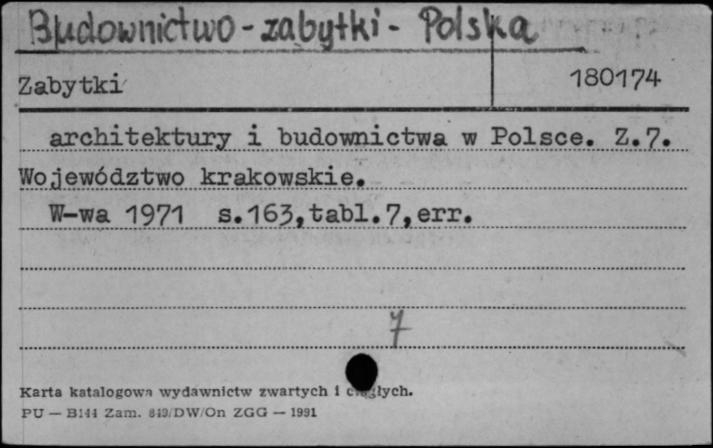 Budownictwo - zabytki - Polska
Zabytki 180174
architektury i budownictwa w Polsce. Z.7.
Województwo krakowskie.
W-wa 1971 s.163,tabl.7,err.
7
Karta katalogowa wydawnictw zwartych i ciągłych.
PU — B144 Zam. 849/DW/On ZGG — 1991